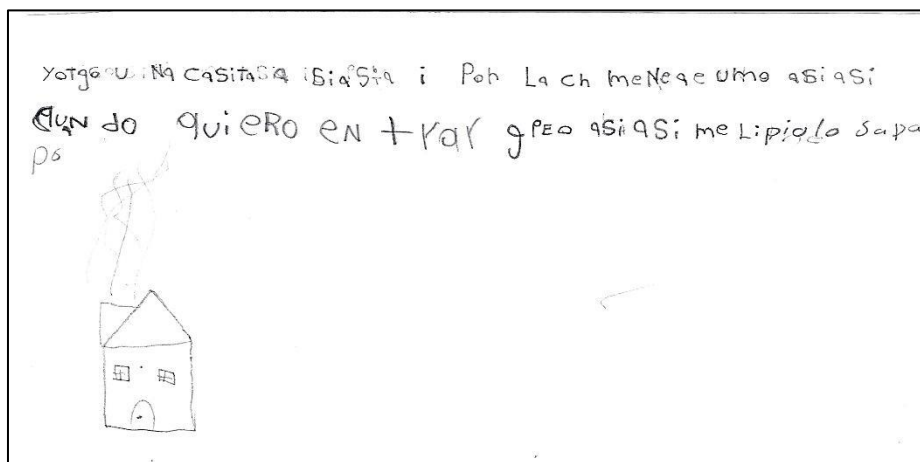 yotgo uiNa casitasa isiasia i Poh La ch meNeae umo asi asi
CUAN do quiERO eN trar gPEO asi asi me Lipialo sapa
ps